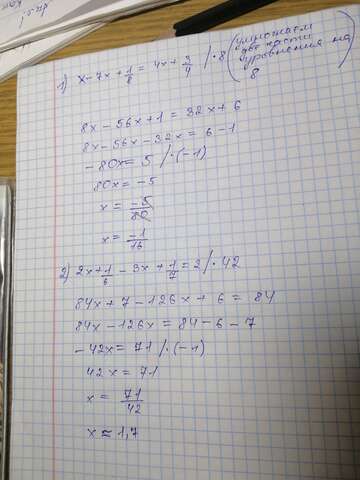 1) x - 7x + 1/8 = 4x + 3/4 /·8 (умножаем
две части
уравнения на
8)
8x - 56x + 1 = 32x + 6
8x - 56x - 32x = 6 - 1
- 80x = 5 /·(-1)
80x = -5
x = -5/80
x = -1/16
2) 2x + 1/6 - 3x + 1/7 = 2 /·42
84x + 7 - 126x + 6 = 84
84x - 126x = 84 - 6 - 7
- 42x = 71 /·(-1)
42x = 71
x = 71/42
x ≈ 1,7